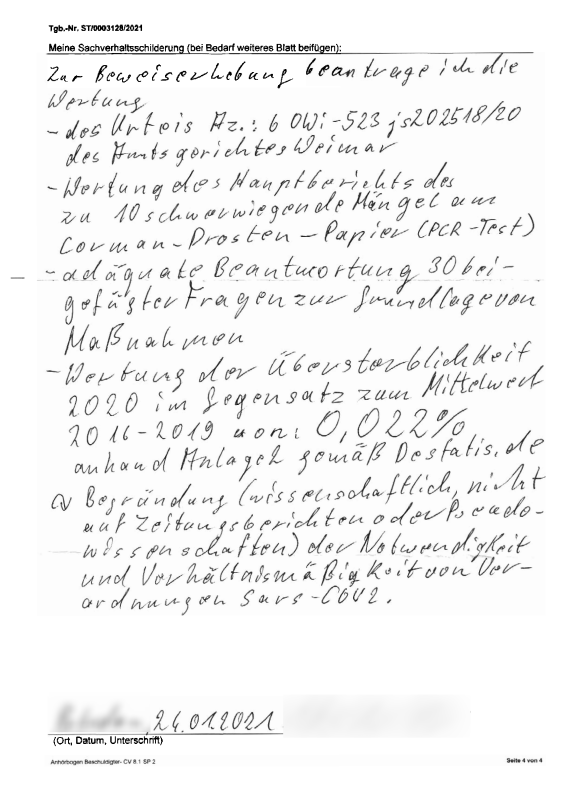 Tgb.-Nr. ST/0003128/2021
Meine Sachverhaltsschilderung (bei Bedarf weiteres Blatt beifügen):
Zur Beweiserhebung beantrage ich die
Wertung
- des Urteis Az.: 6 OWi-523 js202518/20
des Amtsgerichtes Weimar
- Wertung des Hauptberichts des
zu 10 schwerwiegende Mängel am
Corman-Drosten-Papier (PCR-Test)
- adäquate Beantwortung 30 bei-
gefügter Fragen zur Grundlage von
Maßnahmen
- Wertung der Übersterblichkeit
2020 im Gegensatz zum Mittelwert
2016-2019 von: 0,022%
anhand Anlage 2 gemäß Destatis.de
Begründung (wissenschaftlich, nicht
auf Zeitungsberichten oder Pseudo-
wissenschaften) der Notwendigkeit
und Verhältnismäßigkeit von Ver-
ordnungen Sars-COV2.
24.01.2021
(Ort, Datum, Unterschrift)
Anhörbogen Beschuldigter- CV 8.1 SP 2
Seite 4 von 4